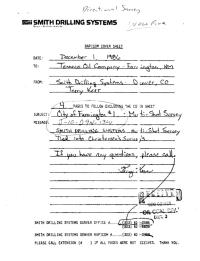 Directional Survey
SMITH DRILLING SYSTEMS
RAPICOM COVER SHEET
DATE: December 1, 1986
TO: Tenneco Oil Company - Farmington, NM
FROM: Smith Drilling Systems - Denver, CO
Terry Kerr
4 PAGES TO FOLLOW EXCLUDING THE COVER SHEET
SUBJECT: City of Farmington #1 - Multi-Shot Survey
MESSAGE:
SMITH DRILLING SYSTEMS Multi-Shot Survey
Tied into Christensen's Survey's.
If you have any questions, please call.
Terry Kerr
SMITH DRILLING SYSTEMS DENVER OFFICE #
SMITH DRILLING SYSTEMS RAPICOM #
PLEASE CALL EXTENSION (# ) IF ALL PAGES WERE NOT RECEIVED. THANK YOU.